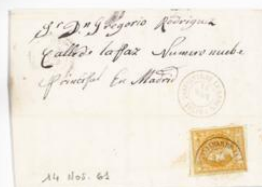 Sr Dn Gregorio Rodriguez
Calle de la Paz Numero nuebe
Principal En Madrid
14 Nov. 61